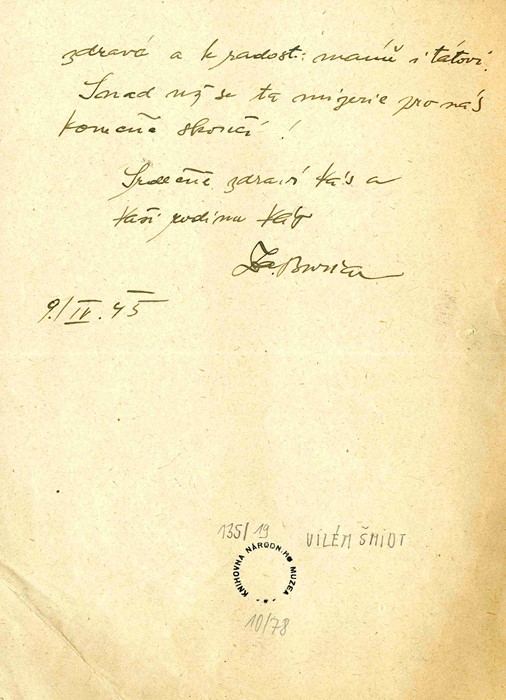 zdravá a k radosti mámě i tátovi.
Snad už se ta mizerie pro nás
konečně skončí!
Srdečně zdraví Vás a
Vaši rodinu Váš
9./IV. 45
135/19 VILÉM ŠMIDT
KNIHOVNA NÁRODNÍHO MUZEA
10/78